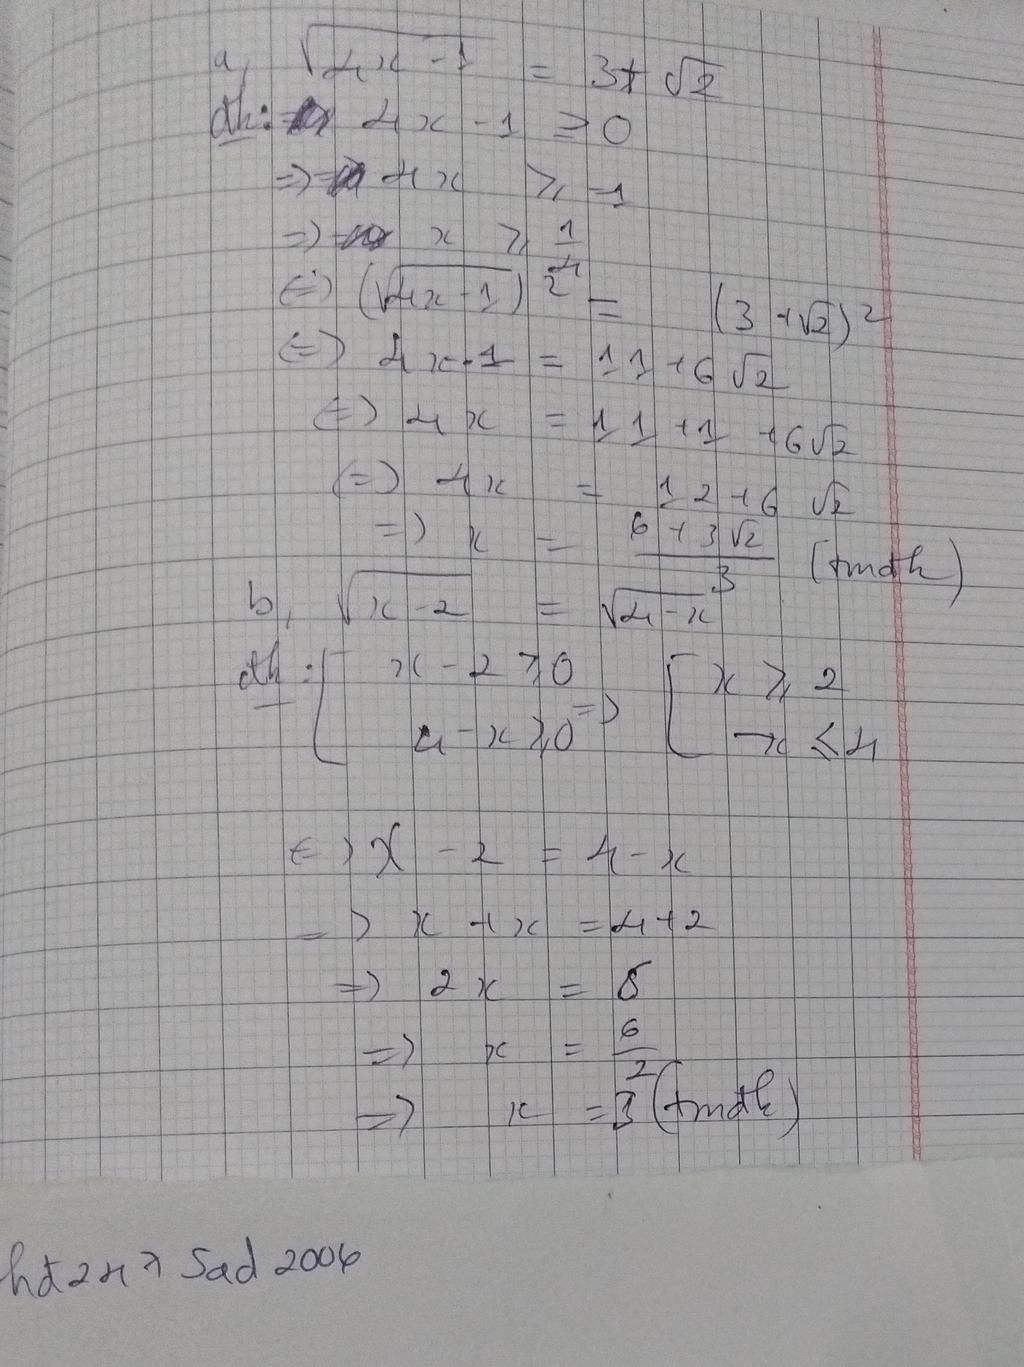 a, √(4x - 1) = 3 + √2
đk: 4x - 1 ≥ 0
=> 4x ≥ 1
=> x ≥ 1/4
<=> (√(4x - 1))² = (3 + √2)²
<=> 4x - 1 = 11 + 6√2
<=> 4x = 11 + 1 + 6√2
<=> 4x = 12 + 6√2
=> x = (6 + 3√2)/3 (tmđk)
b, √(x - 2) = √(4 - x)
đk: [ x - 2 ≥ 0 => [ x ≥ 2
4 - x ≥ 0 -x ≤ 4
<=> x - 2 = 4 - x
=> x + x = 4 + 2
=> 2x = 6
=> x = 6/2
=> x = 3 (tmđk)
ht247 Sad 2006